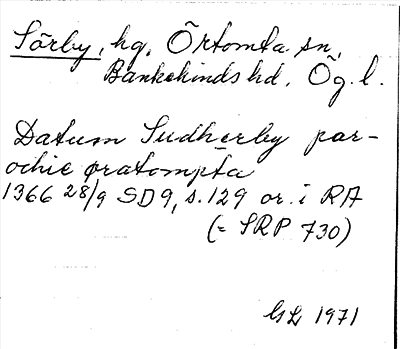 Sörby, hg, Örtomta sn,
Bankekinds hd. Ög. l.
Datum Sudherby par-
ochie øratompta
1366 28/9 SD9, s. 129 or. i RA
(= SRP 730)
GL 1971